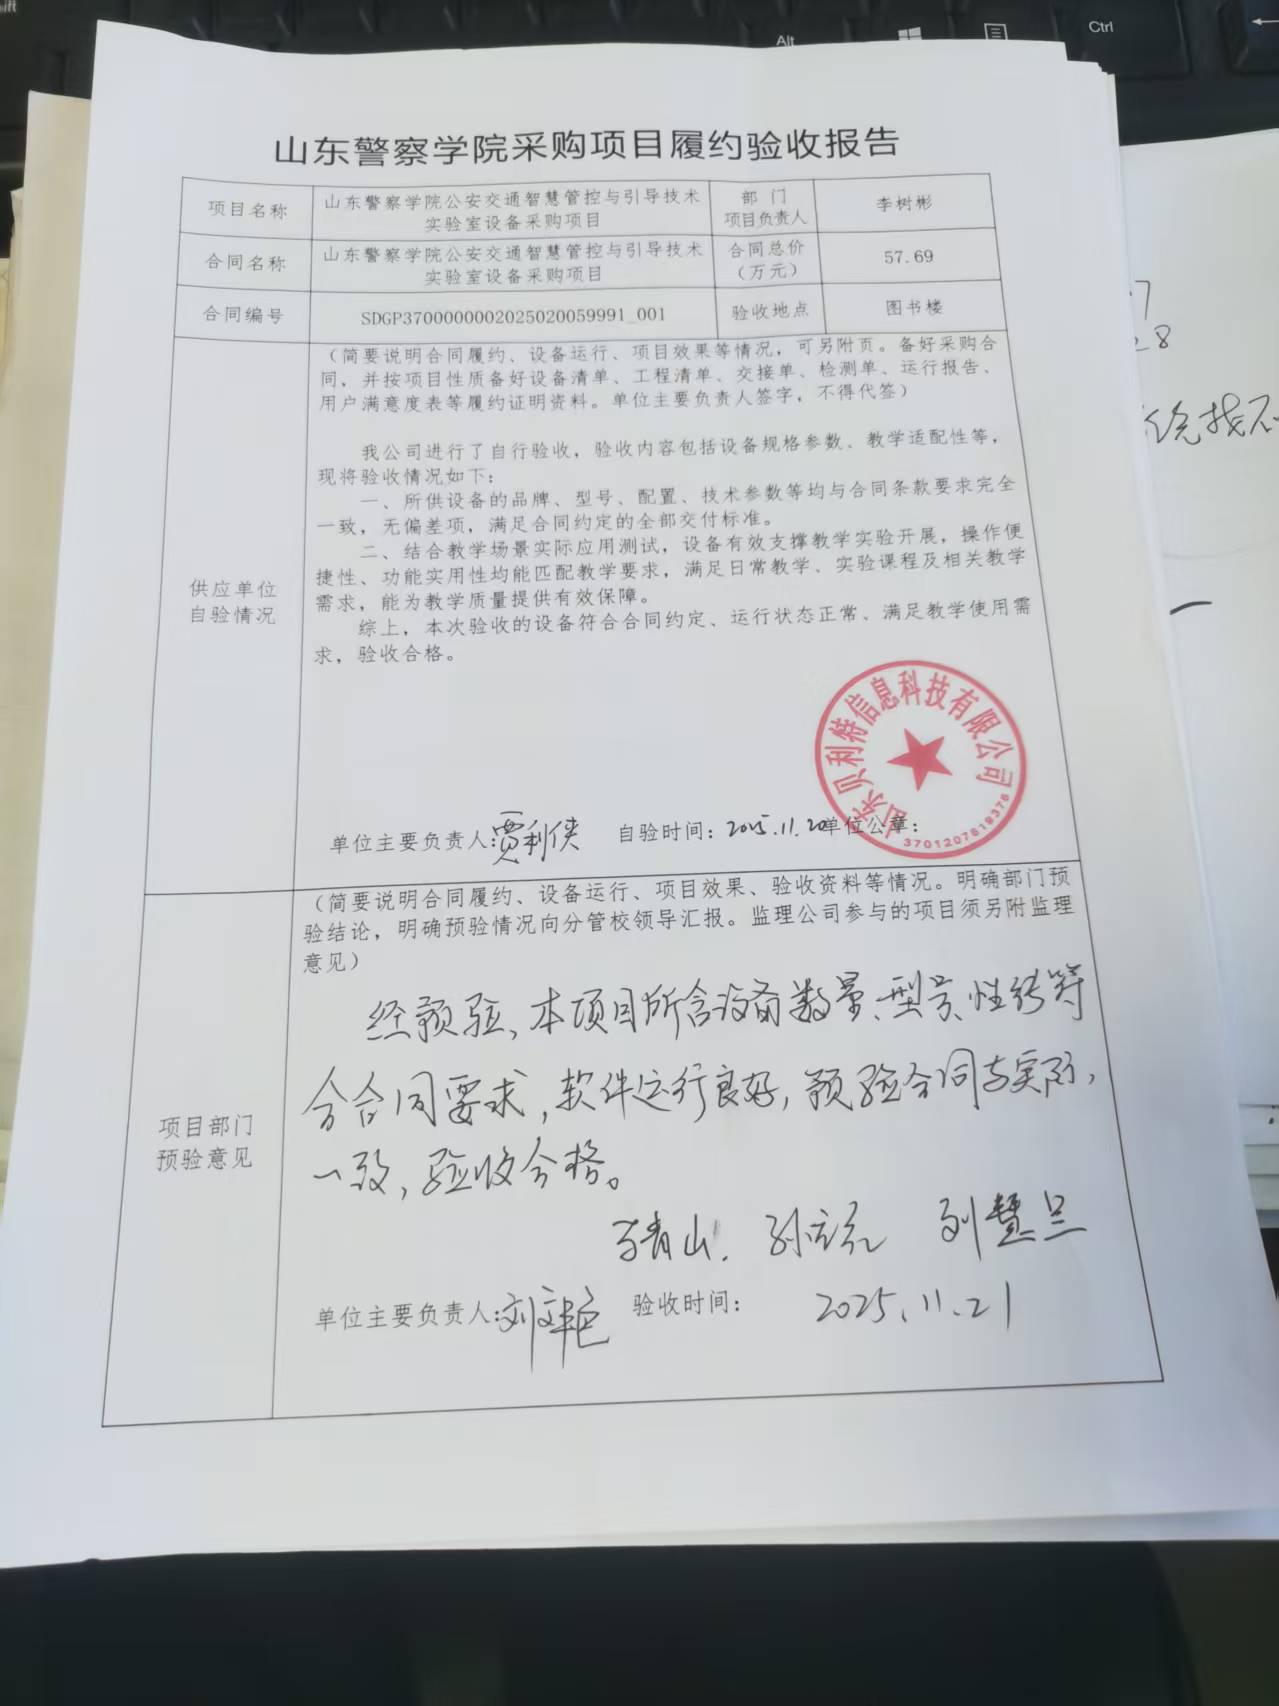 Alt
Ctrl
山东警察学院采购项目履约验收报告
项目名称
山东警察学院公安交通智慧管控与引导技术
实验室设备采购项目
部 门
项目负责人
李树彬
合同名称
山东警察学院公安交通智慧管控与引导技术
实验室设备采购项目
合同总价
（万元）
57.69
合同编号
SDGP370000000202502005991_001
验收地点
图书楼
供应单位
自验情况
（简要说明合同履约、设备运行、项目效果等情况，可另附页。备好采购合
同，并按项目性质备好设备清单、工程清单、交接单、检测单、运行报告、
用户满意度表等履约证明资料。单位主要负责人签字，不得代签）
我公司进行了自行验收，验收内容包括设备规格参数、教学适配性等，
现将验收情况如下：
一、所供设备的品牌、型号、配置、技术参数等均与合同条款要求完全
一致，无偏差项，满足合同约定的全部交付标准。
二、结合教学场景实际应用测试，设备有效支撑教学实验开展，操作便
捷性、功能实用性均能匹配教学要求，满足日常教学、实验课程及相关教学
需求，能为教学质量提供有效保障。
综上，本次验收的设备符合合同约定、运行状态正常、满足教学使用需
求，验收合格。
山东贝利特信息科技有限公司
单位主要负责人：贾利侠 自验时间：2025.11.20 单位公章：
项目部门
预验意见
（简要说明合同履约、设备运行、项目效果、验收资料等情况。明确部门预
验结论，明确预验情况向分管校领导汇报。监理公司参与的项目须另附监理
意见）
经预验，本项目所含设备数量、型号、性能符
合合同要求，软件运行良好，预验合同与实际，
一致，验收合格。
刘慧兰
单位主要负责人： 验收时间： 2025.11.21
28